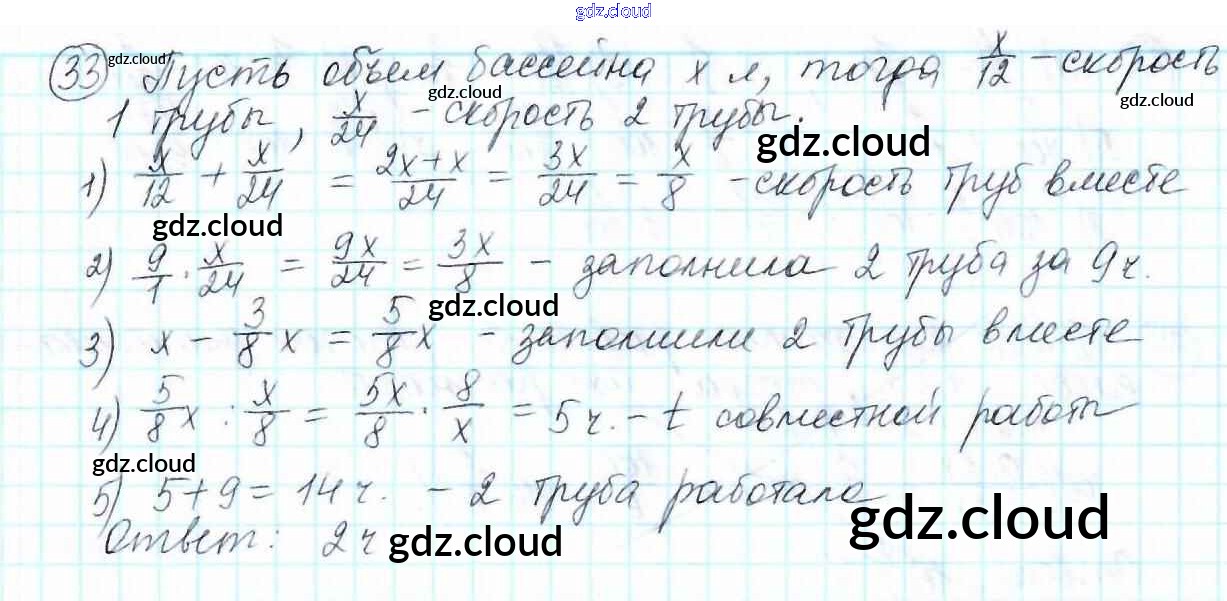 gdz.cloud
33 gdz.cloud Пусть объем бассейна x л, тогда x/12 – скорость
gdz.cloud gdz.cloud
1 трубы, x/24 – скорость 2 трубы.
gdz.cloud
1) x/12 + x/24 = 2x+x/24 = 3x/24 = x/8 – скорость труб вместе
gdz.cloud
2) 9/1 · x/24 = 9x/24 = 3x/8 – заполнила 2 труба за 9 ч.
gdz.cloud
3) x – 3/8 x = 5/8 x – заполнили 2 трубы вместе
4) 5/8 x : x/8 = 5x/8 · 8/x = 5 ч. – t совместной работы
gdz.cloud
5) 5+9 = 14 ч. – 2 труба работала
gdz.cloud
Ответ: 2 ч gdz.cloud